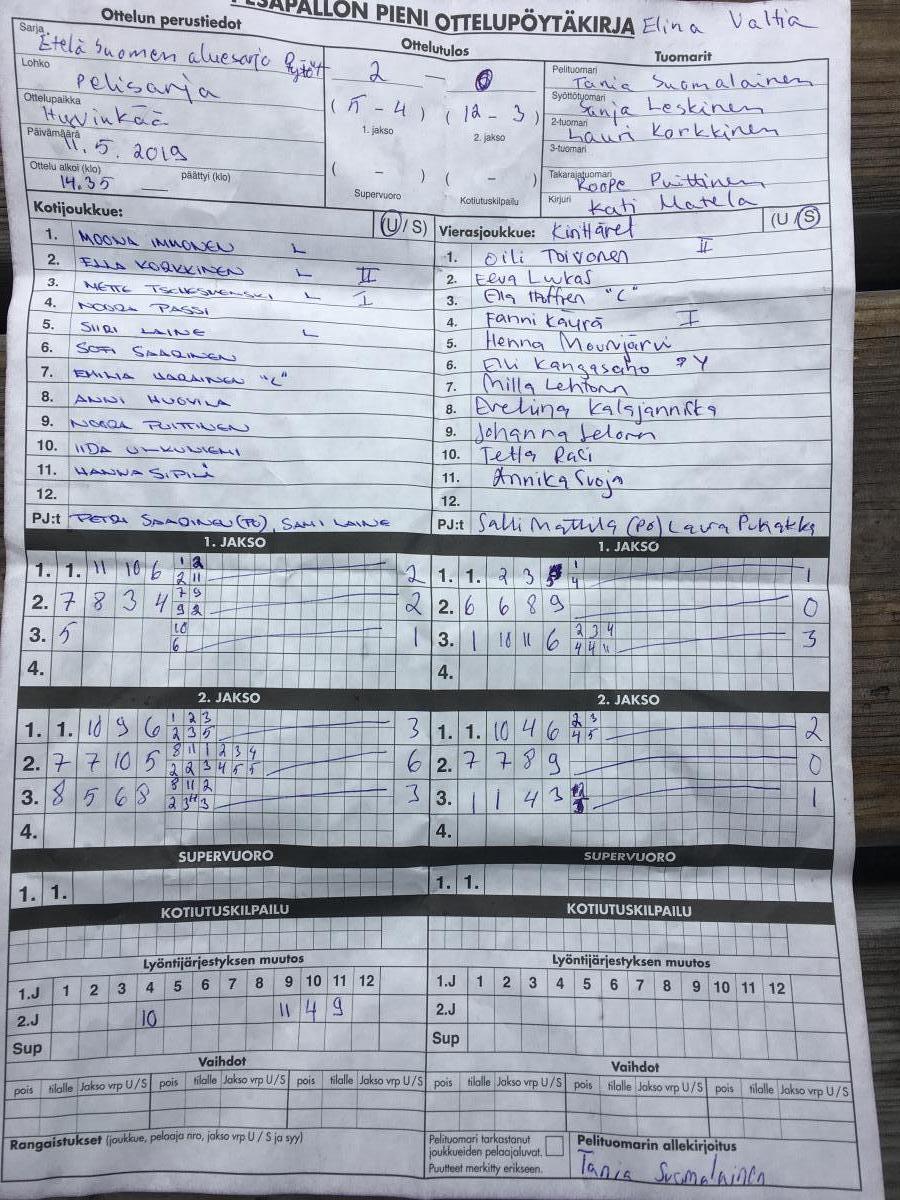 PESÄPALLON PIENI OTTELUPÖYTÄKIRJA Elina Valtia
Ottelun perustiedot
Sarja Etelä Suomen aluesarja Tytöt
Lohko Pelisarja
Ottelupaikka Hyvinkää
Päivämäärä 11.5.2019
Ottelu alkoi (klo) 14.35 päättyi (klo)
Ottelutulos
2 — 0
( 5 - 4 ) ( 12 - 3 )
1. jakso 2. jakso
( - ) ( - )
Supervuoro Kotiutuskilpailu
Tuomarit
Pelituomari Tania Suomalainen
Syöttötuomari Sanja Leskinen
2-tuomari Lauri Korkkinen
3-tuomari
Takarajatuomari Roope Puittinen
Kirjuri Kati Matela
Kotijoukkue: (U/S)
1. MOONA IMMONEN L
2. ELLA KORKKINEN L II
3. METTE L I
4. NOORA PASSI
5. SIIRI LAINE L
6. SOFI SAARINEN
7. EMILIA "C"
8. ANNI HUOVILA
9. NOORA PUITTINEN
10. IIDA
11. HANNA SIPILÄ
12.
PJ:t PETRI SAARINEN (PJ), SAMI LAINE
Vierasjoukkue: Kinttaret (U/S)
1. Oili Toivonen II
2. Eeva Lukas
3. Ella Hoffren "C"
4. Fanni Käyrä I
5. Henna Mourujärvi
6. Elli Kangasaho
7. Milla Lehtonen
8. Eveliina Kalajannista
9. Johanna
10. Tetta Pasi
11. Annika Suoja
12.
PJ:t Salli Mattila (PJ) Laura
1. JAKSO
1. 1. 11 10 6 1 2 2 11 2
2. 7 8 3 4 7 9 9 2 2
3. 5 10 6 1
4.
1. JAKSO
1. 1. 2 3 1 4 1
2. 6 6 8 9 0
3. 1 10 11 6 2 3 4 4 4 11 3
4.
2. JAKSO
1. 1. 10 9 6 1 2 3 2 3 5 3
2. 7 7 10 5 8 11 1 2 3 4 2 2 3 4 5 5 6
3. 8 5 6 8 8 11 2 3
4.
2. JAKSO
1. 1. 10 4 6 2 3 4 5 2
2. 7 7 8 9 0
3. 1 1 4 3 1
4.
SUPERVUORO
1. 1.
SUPERVUORO
1. 1.
KOTIUTUSKILPAILU
KOTIUTUSKILPAILU
Lyöntijärjestyksen muutos
1.J 1 2 3 4 5 6 7 8 9 10 11 12
2.J 10 11 4 9
Sup
Lyöntijärjestyksen muutos
1.J 1 2 3 4 5 6 7 8 9 10 11 12
2.J
Sup
Vaihdot
pois tilalle Jakso vrp U/S pois tilalle Jakso vrp U/S pois tilalle Jakso vrp U/S
Vaihdot
pois tilalle Jakso vrp U/S pois tilalle Jakso vrp U/S pois tilalle Jakso vrp U/S
Rangaistukset (joukkue, pelaaja nro, jakso vrp U / S ja syy)
Pelituomari tarkastanut
joukkueiden pelaajaluvat.
Puutteet merkitty erikseen.
Pelituomarin allekirjoitus
Tania Suomalainen